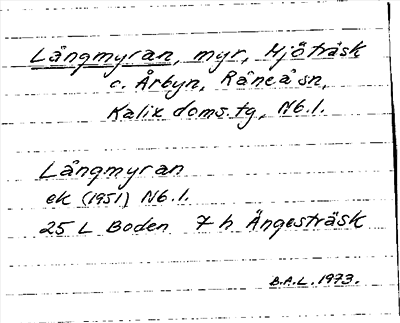 Långmyran, myr, Mjöträsk
c. Årbyn, Råneå sn,
Kalix doms.tg, Nb.l.
Långmyran
ek (1951) Nb.l.
25 L Boden 7 h Ängesträsk
B.A.L. 1973.